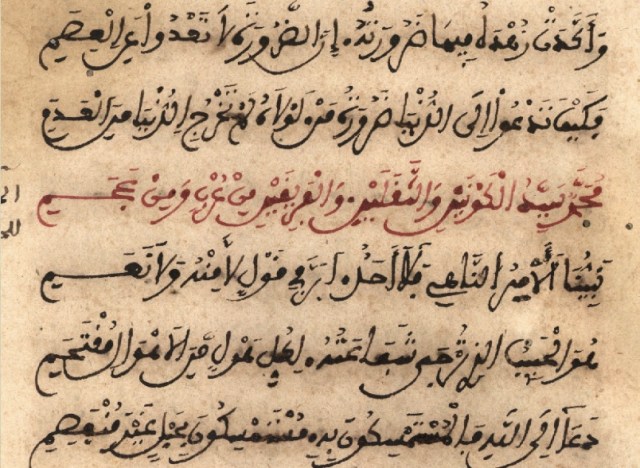 وَأَكَّدَتْ زُهْدَهُ فِيهَا ضَرُورَتُهُ إِنَّ الضَّرُورَةَ لَا تَعْدُوا عَلَى الْعِصَمِ
فَكَيْفَ تَدْعُوا إِلَى الدُّنْيَا ضَرُورَةُ مَنْ لَوْلَاهُ لَمْ تَخْرُجِ الدُّنْيَا مِنَ الْعَدَمِ
مُحَمَّدٌ سَيِّدُ الْكَوْنَيْنِ وَالثَّقَلَيْنِ وَالْفَرِيقَيْنِ مِنْ عُرْبٍ وَمِنْ عَجَمِ
نَبِيُّنَا الْآمِرُ النَّاهِي فَلَا أَحَدٌ أَبَرَّ فِي قَوْلِ لَا مِنْهُ وَلَا نَعَمِ
هُوَ الْحَبِيبُ الَّذِي تُرْجَى شَفَاعَتُهُ لِكُلِّ هَوْلٍ مِنَ الْأَهْوَالِ مُقْتَحَمِ
دَعَا إِلَى اللَّهِ فَالْمُسْتَمْسِكُونَ بِهِ مُسْتَمْسِكُونَ بِحَبْلٍ غَيْرِ مُنْفَصِمِ